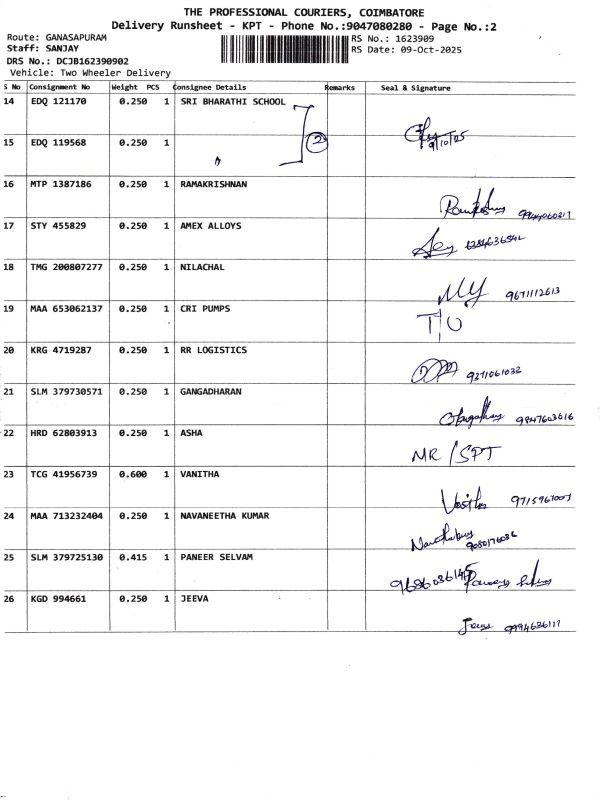 THE PROFESSIONAL COURIERS, COIMBATORE
Delivery Runsheet - KPT - Phone No.:9047080280 - Page No.:2
Route: GANASAPURAM RS No.: 1623909
Staff: SANJAY RS Date: 09-Oct-2025
DRS No.: DCJB162390902
Vehicle: Two Wheeler Delivery
S No Consignment No Weight PCS Consignee Details Remarks Seal & Signature
14 EDQ 121170 0.250 1 SRI BHARATHI SCHOOL
9/10/25
15 EDQ 119568 0.250 1 2
16 MTP 1387186 0.250 1 RAMAKRISHNAN
17 STY 455829 0.250 1 AMEX ALLOYS
18 TMG 200807277 0.250 1 NILACHAL
9671112613
19 MAA 653062137 0.250 1 CRI PUMPS
T/O
20 KRG 4719287 0.250 1 RR LOGISTICS
9371061032
21 SLM 379730571 0.250 1 GANGADHARAN
9847603616
22 HRD 62803913 0.250 1 ASHA
MR / SPT
23 TCG 41956739 0.600 1 VANITHA
24 MAA 713232404 0.250 1 NAVANEETHA KUMAR
25 SLM 379725130 0.415 1 PANEER SELVAM
26 KGD 994661 0.250 1 JEEVA